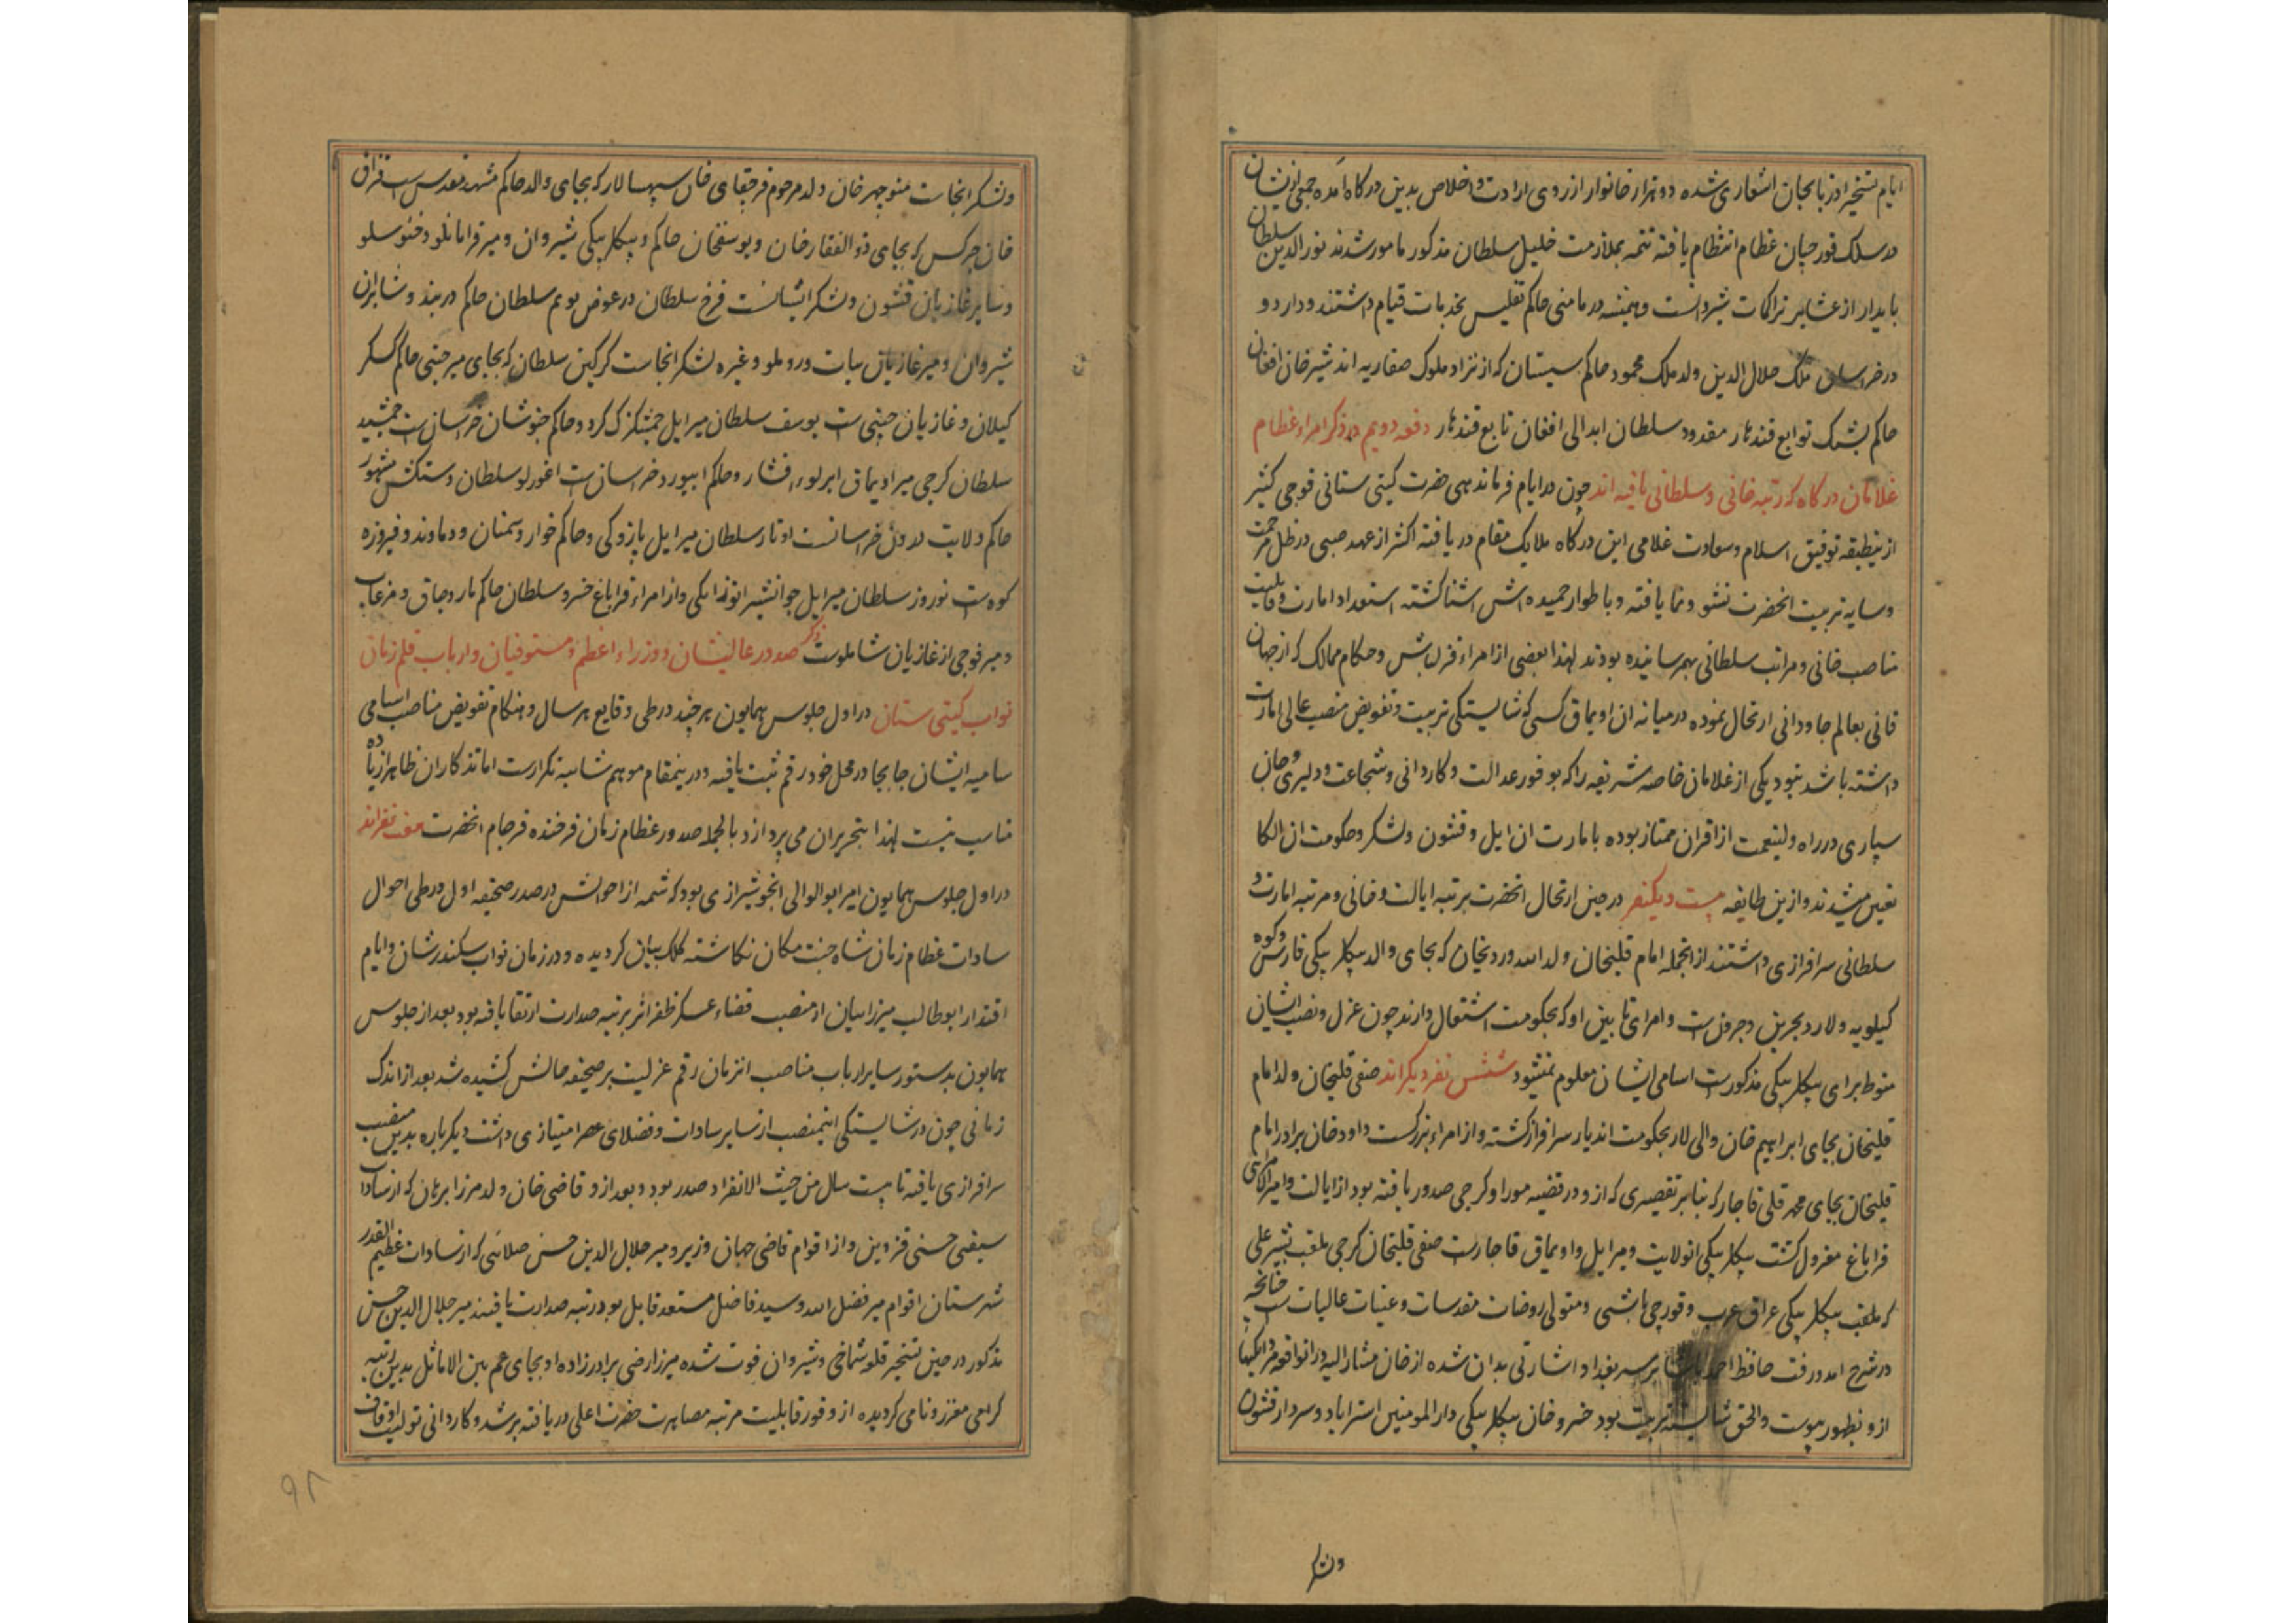 ایام تسخیر اذربایجان اشعاری شده دو هزار خانوار از روی ارادت و اخلاص بدین درکاه آمده جمعی ازیشان
در سلک قورچیان عظام انتظام یافته تتمه بملازمت خلیل سلطان مذکور مامور شدند نورالدین سلطان
بایدار از عشایر تراکمات شیروانست و همیشه در مامنی حاکم تفلیس بخدمات قیام داشتند و دار دو
در خراسان ملک جلال الدین ولد ملک محمود حاکم سیستان که از نژاد ملوک صفاریه اند شیر خان افغان
حاکم بشنک توابع قندهار مقدود سلطان ابدالی افغان تابع قندهار دفعه دویم در ذکر امراء عظام
غلامان درکاه که رتبه خانی و سلطانی یافته اند چون در ایام فرماندهی حضرت کیتی ستانی فوجی کثیر
ازینطبقه توفیق اسلام و سعادت غلامی این درکاه ملایک مقام دریافته اکثر از عهد صبی در ظل مرحمت
و سایه تربیت انحضرت نشو و نما یافته و باطوار حمیده اش اشنا کشته استعداد امارت و قابلیت
مناصب خانی و مراتب سلطانی بهمرسانیده بودند لهذا بعضی از امراء قزلباش و حکام ممالک که از جهان
فانی بعالم جاودانی ارتحال نموده در میانه ان اویماق کسی که شایستکی تربیت و تفویض منصب عالی امارت
داشته باشد نبود یکی از غلامان خاصه شریفه را که بوفور عدالت و کاردانی و شجاعت و دلیری و جان
سپاری در راه ولینعمت از اقران ممتاز بوده بامارت ان ایل و قشون و لشکر و حکومت ان الکا
تعین میشدند و ازین طایفه بیست و یکنفر در حین ارتحال انحضرت برتبه ایالت و خانی و مرتبه امارت و
سلطانی سرافرازی داشتند از انجمله امام قلیخان ولد الله وردیخان که بجای والد بیکلر بیکی فارس و کوه
کیلویه و لار و بحرین و جرونست و امرای تابین او که بحکومت اشتغال دارند چون عزل و نصب ایشان
منوط برای بیکلر بیکی مذکورست اسامی ایشان معلوم نمیشود شش نفر دیکراند صفی قلیخان ولد امام
قلیخان بجای ابراهیم خان والی لار بحکومت اندیار سرافراز کشته و از امراء بزرکست داود خان برادر امام
قلیخان بجای محمد قلی قاجار که بنابر تقصیری که ازو در قضیه موراو کرجی صدور یافته بود از ایالت و امیرالامرای
قراباغ معزول کشت بیکلر بیکی انولایت و میر ایل و اویماق قاجارست صفی قلیخان کرجی ملقب بشیر علی
که ملقب بیکلر بیکی عراق عرب و قورچی باشی و متولی روضات مقدسات و عتبات عالیات ست چنانچه
در شرح امد و رفت حافظ احمد پاشا بر سر بغداد اشارتی بدان شده از خان مشارالیه در انواقعه مردانکیها
ازو بظهور پیوست والحق شایسته تربیت بود خسرو خان بیکلر بیکی دارالمومنین استراباد و سردار قشون
ولشکر
ولشکر انجاست منوچهر خان ولد مرحوم قرچقای خان سپهسالار که بجای والد حاکم مشهد مقدس ست قزاق
خان چرکس که بجای ذوالفقار خان و یوسفخان حاکم و بیکلر بیکی شیروان و میر قرامانلو و خنوسلو
و سایر غازیان قشون و لشکر انشانست فرخ سلطان در عوض بویم سلطان حاکم دربند و شابران
شیروان و میر غازیان بیات و روملو و غیره لشکر انجاست کرکین سلطان که بجای میر جینی حاکم کسکر
کیلان و غازیان چینی ست یوسف سلطان میر ایل چمشکزک کرد و حاکم خبوشان خراسان ست جمشید
سلطان کرجی میر اویماق ابرلوء افشار و حاکم ابیورد خراسان ست اغورلو سلطان دستکش مشهور
حاکم ولایت درون خراسانست اوتار سلطان میر ایل پازوکی و حاکم خوار و سمنان و دماوند و فیروزه
کوه ست نوروز سلطان میر ایل جوانشیر اتوزایکی و از امراء قراباغ خسرو سلطان حاکم ماروچاق و مرغاب
و میر فوجی از غازیان شاملوست ذکر صدور عالیشان و وزراء اعظم و مستوفیان و ارباب قلم زمان
نواب کیتی ستان در اول جلوس همایون هر چند در طی وقایع هر سال و هنکام تفویض مناصب اسامی
سامیه ایشان جابجا در محل خود رقم ثبت یافته و درینمقام موهم شایبه تکرارست اما تذکار ان ظاهرا زیاده
مناسب نیست لهذا بتحریر ان می پردازد بالجمله صدور عظام زمان فرخنده فرجام انحضرت هفت نفراند
در اول جلوس همایون امیر ابوالوالی انجو شیرازی بود که شمه از احوالش در صدر صحیفه اول در طی احوال
سادات عظام زمان شاه جنت مکان نکاشته کلک بیان کردیده و در زمان نواب سکندرشان و ایام
اقتدار ابوطالب میرزا بیان از منصب قضاء عسکر ظفر اثر برتبه صدارت ارتقا یافته بود بعد از جلوس
همایون بدستور سایر ارباب مناصب انزمان رقم عزلت بر صحیفه حالش کشیده شد بعد از اندک
زمانی چون در شایستکی اینمنصب از سایر سادات و فضلای عصر امتیازی داشت دیکر باره بدین منصب
سرافرازی یافته تا بیست سال من حیث الانفراد صدر بود و بعد ازو قاضی خان ولد مرزا برهان که از سادات
سیفی حسنی قزوین و از اقوام قاضی جهان وزیر و میر جلال الدین حسن صلائی که از سادات عظیم القدر
شهرستان اقوام میر فضل الله و سید فاضل مستعد قابل بود رتبه صدارت یافتند میر جلال الدین حسن
مذکور در حین تسخیر قلعه شماخی و شیروان فوت شده میرزا رضی برادرزاده او بجای عم بین الاماثل بدین رتبه
کرامی معزز و نامی کردیده از وفور قابلیت مرتبه مصاهرت حضرت اعلی دریافته برشد و کاردانی تولیت اوقاف